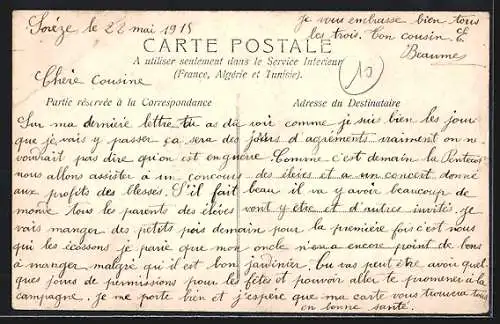 Sorèze le 22 mai 1915
je vous embrasse bien tous
les trois. Ton cousin E.
Beaumes
CARTE POSTALE
A utiliser seulement dans le Service Intérieur
(France, Algérie et Tunisie).
10
Chère Cousine
Partie réservée à la Correspondance
Adresse du Destinataire
Sur ma dernière lettre tu as dû voir comme je suis bien les jours
que je vais y passer ça sera des jours d'agréments vraiment on ne
voudrait pas dire qu'on est en guerre. Comme c'est demain la Pentecôte
nous allons assister à un concours des élèves et a un concert donné
aux profits des blessés. S'il fait beau il va y avoir beaucoup de
monde tous les parents des élèves vont y être et d'autres invités. Je
vais manger des petits pois demain pour la première fois c'est nous
qui les écossons je parie que mon oncle n'en a encore point de bons
à manger malgré qu'il est bon jardinier. Tu vas peut être avoir quel-
ques jours de permissions pour les fêtes et pouvoir aller te promener à la
campagne. je me porte bien et j'espère que ma carte vous trouvera tous
en bonne santé.